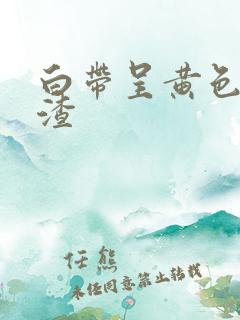 白帶呈黃色
渣
任熊
未经同意禁止转载